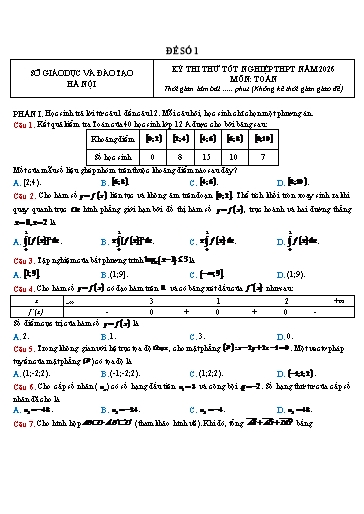 ĐỀ SỐ 1
SỞ GIÁO DỤC VÀ ĐÀO TẠO
HÀ NỘI
KỲ THI THỬ TỐT NGHIỆP THPT NĂM 2026
MÔN: TOÁN
Thời gian làm bài ..... phút (Không kể thời gian giao đề)
PHẦN I. Học sinh trả lời từ câu 1 đến câu 12. Mỗi câu hỏi, học sinh chỉ chọn một phương án.
Câu 1. Kết quả kiểm tra Toán của 40 học sinh lớp 12 A được cho bởi bảng sau:
Khoảng điểm [0;2) [2;4) [4;6) [6;8) [8;10)
Số học sinh 0 8 15 10 7
Mốt của mẫu số liệu ghép nhóm trên thuộc khoảng điểm nào sau đây?
A. [2;4). B. [6;8). C. [4;6). D. [8;10).
Câu 2. Cho hàm số y = f(x) liên tục và không âm trên đoạn [0;2]. Thể tích khối tròn xoay sinh ra khi
quay quanh trục Ox hình phẳng giới hạn bởi đồ thị hàm số y = f(x), trục hoành và hai đường thẳng
x=0, x=2 là
A. B. C. D.
Câu 3. Tập nghiệm của bất phương trình là
A. B. (1;9]. C. D. (1;9).
Câu 4. Cho hàm số y = f(x) có đạo hàm trên và có bảng xét dấu của f'(x) như sau:
x -∞ 3 1 2 +∞
f'(x) - 0 + 0 + 0 -
Số điểm cực trị của hàm số y = f(x) là
A. 2. B. 1. C. 3. D. 0.
Câu 5. Trong không gian với hệ trục tọa độ Oxyz, cho mặt phẳng (P): x-2y+2z-1=0. Một vectơ pháp
tuyến của mặt phẳng (P) có tọa độ là
A. (1;-2;2). B. (-1;-2;2). C. (1;2;2). D.
Câu 6. Cho cấp số nhân (uₙ) có số hạng đầu tiên u₁=3 và công bội q=-2. Số hạng thứ tư của cấp số
nhân đã cho là
A. B. C. D.
Câu 7. Cho hình hộp ABCD.A'B'C'D' (tham khảo hình vẽ). Khi đó, tổng bằng